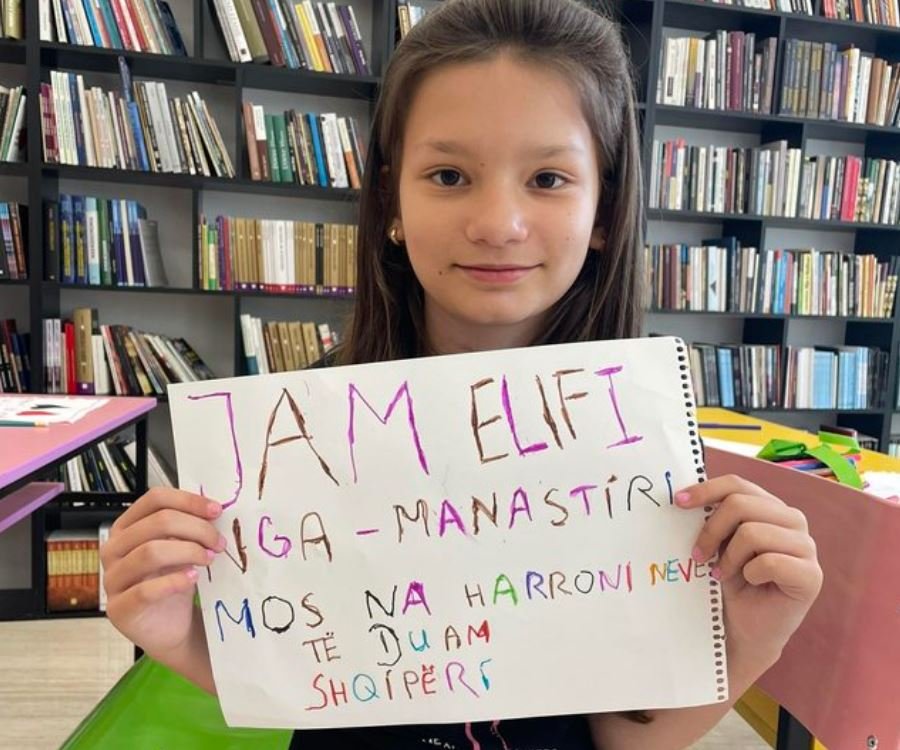 JAM ELIFI
NGA - MANASTÍRI
MOS NA HARRONI NEVE
TË DUAM
SHQÍPËRÍ